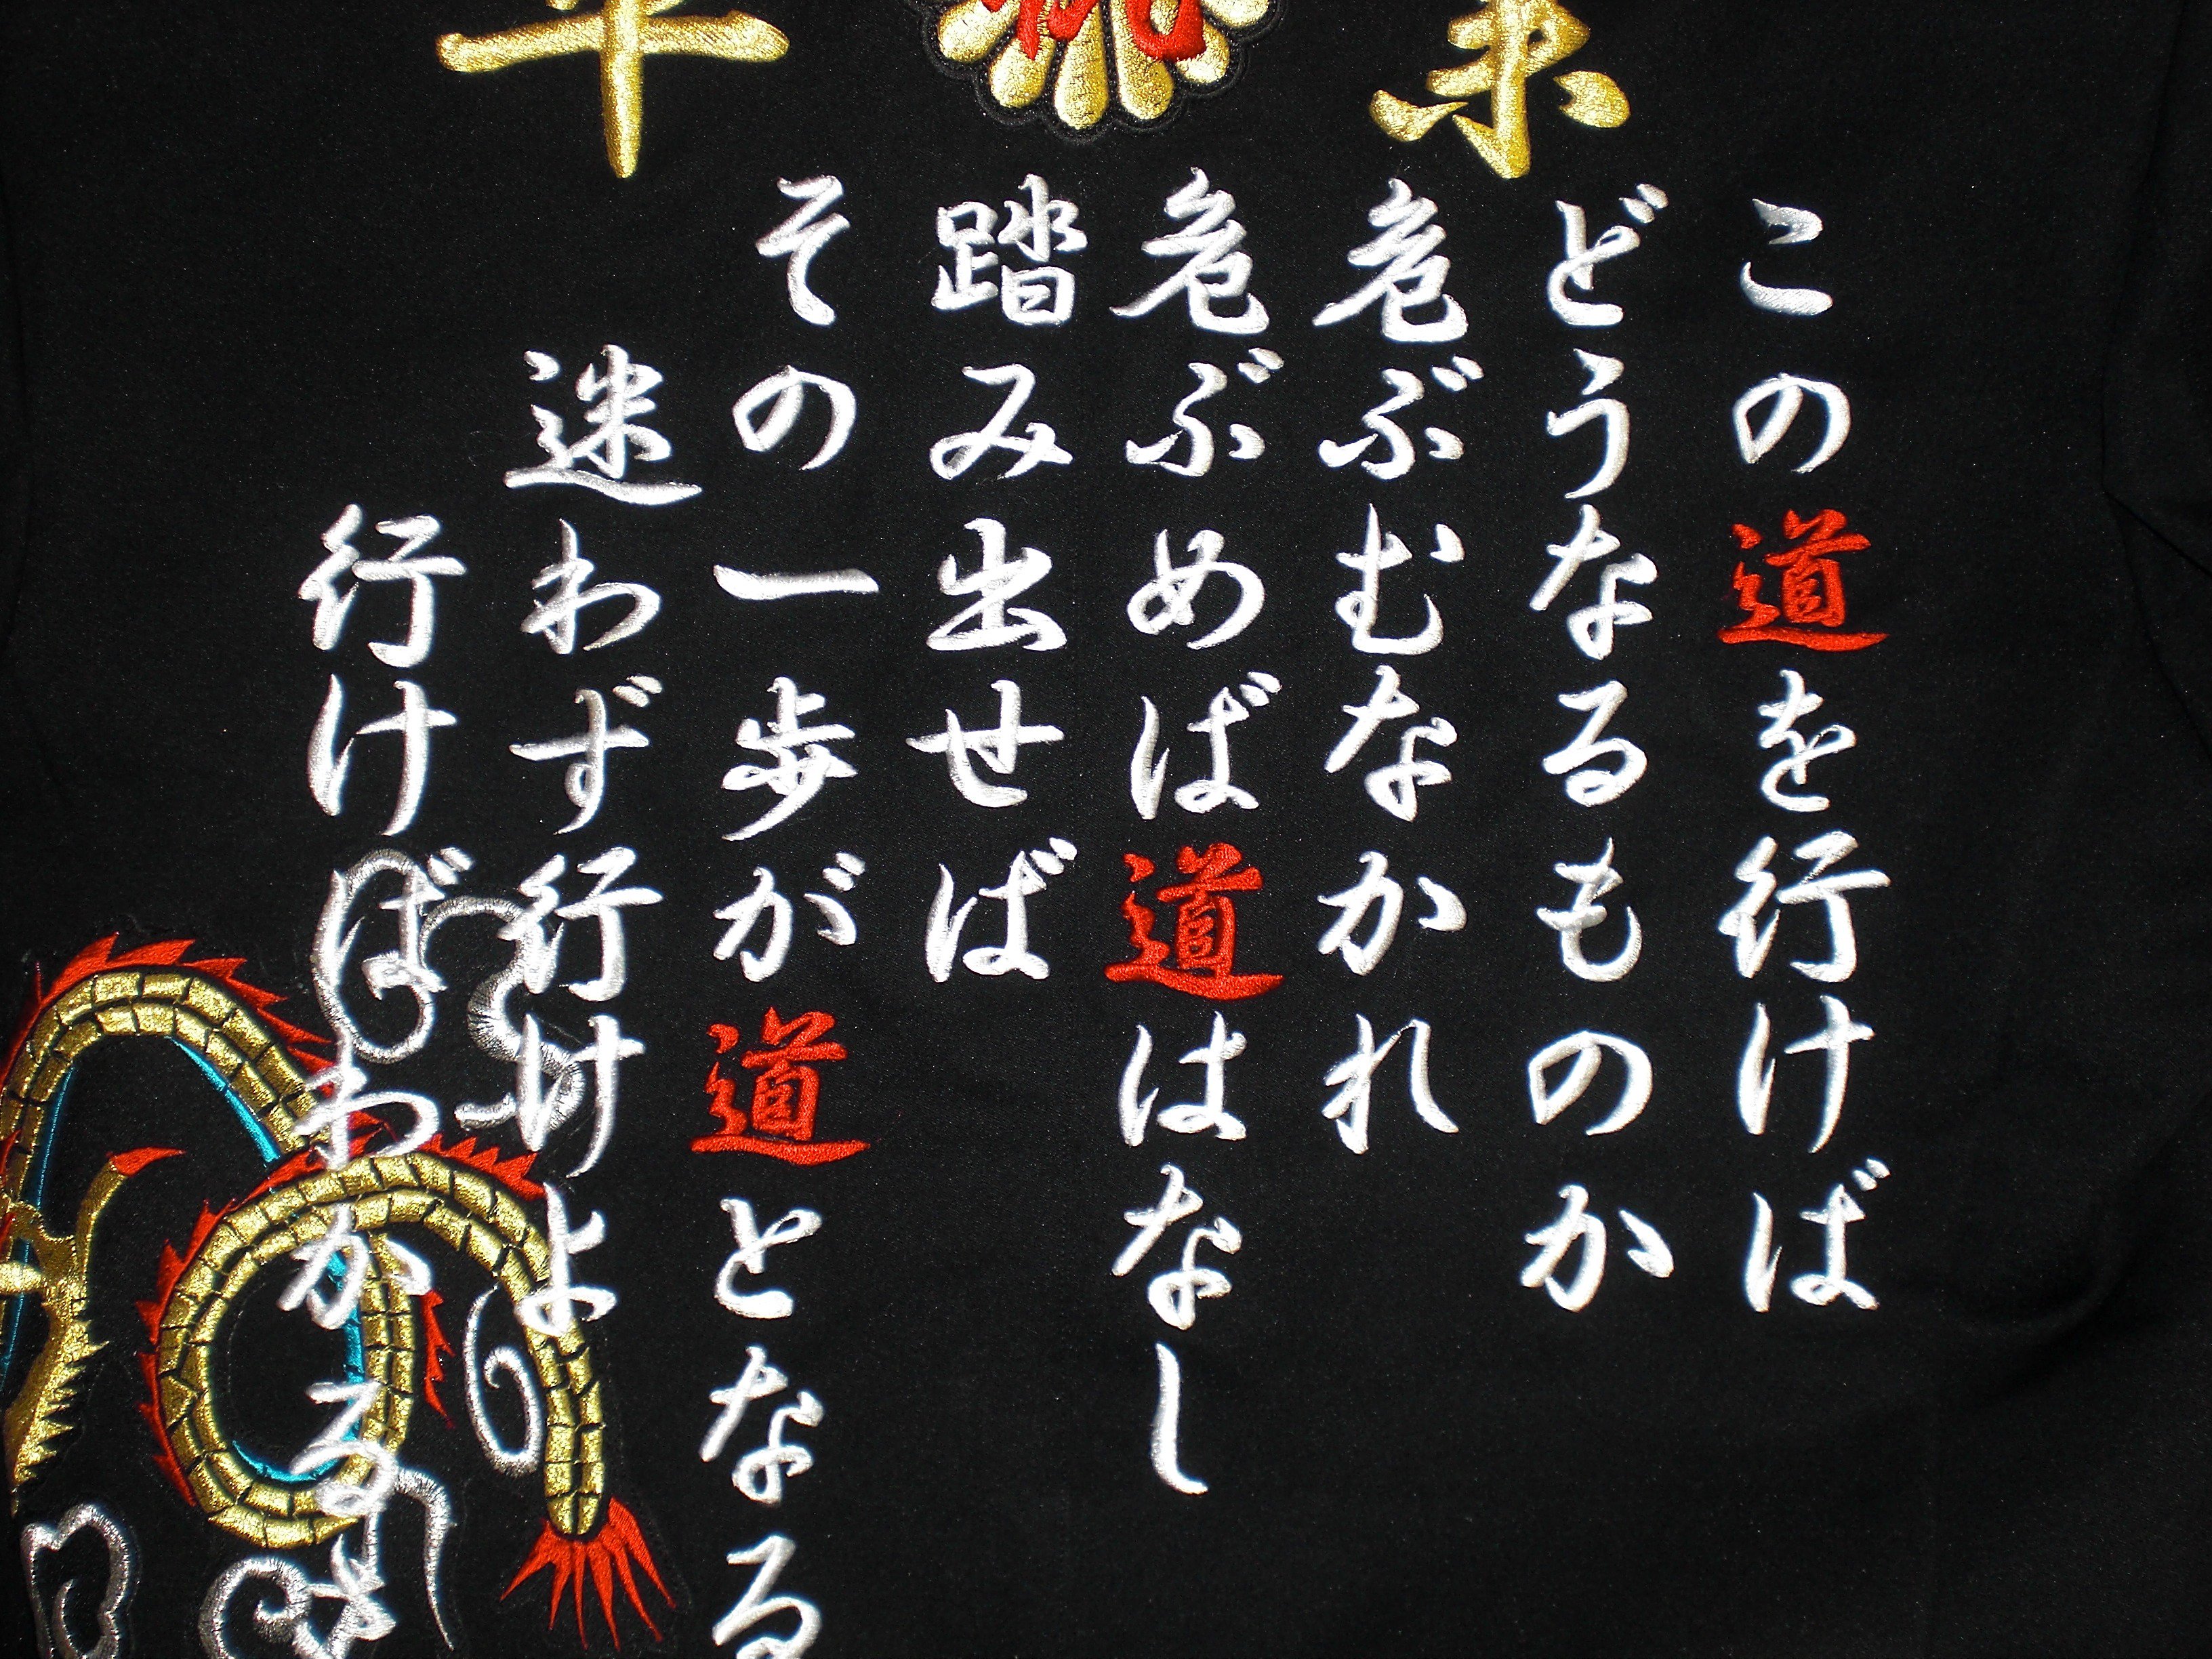 この道を行けば
どうなるものか
危ぶむなかれ
危ぶめば道はなし
踏み出せば
その一歩が道となる
迷わず行けよ
行けばわかるさ